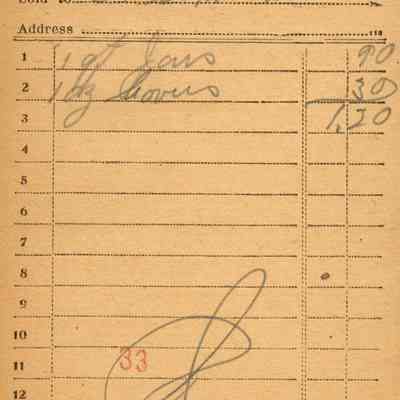 Sold to
Address 118
1 1 qt Jars 90
2 1 dz Covers 30
3 1,20
4
5
6
7
8
9
10
33
11
12